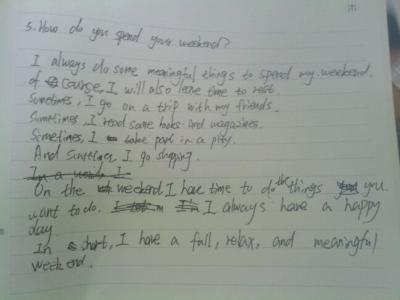 5. How do you spend your weekend?
I always do some meaningful things to spend my weekend.
Of course, I will also leave time to rest
Sometimes, I go on a trip with my friends.
Sometimes, I read some books and magazines.
Sometimes, I take part in a pity.
And sometimes I go shopping.
On the weekend I have time to do the things you
want to do. I always have a happy
day.
In short, I have a full, relax, and meaningful
weekend.